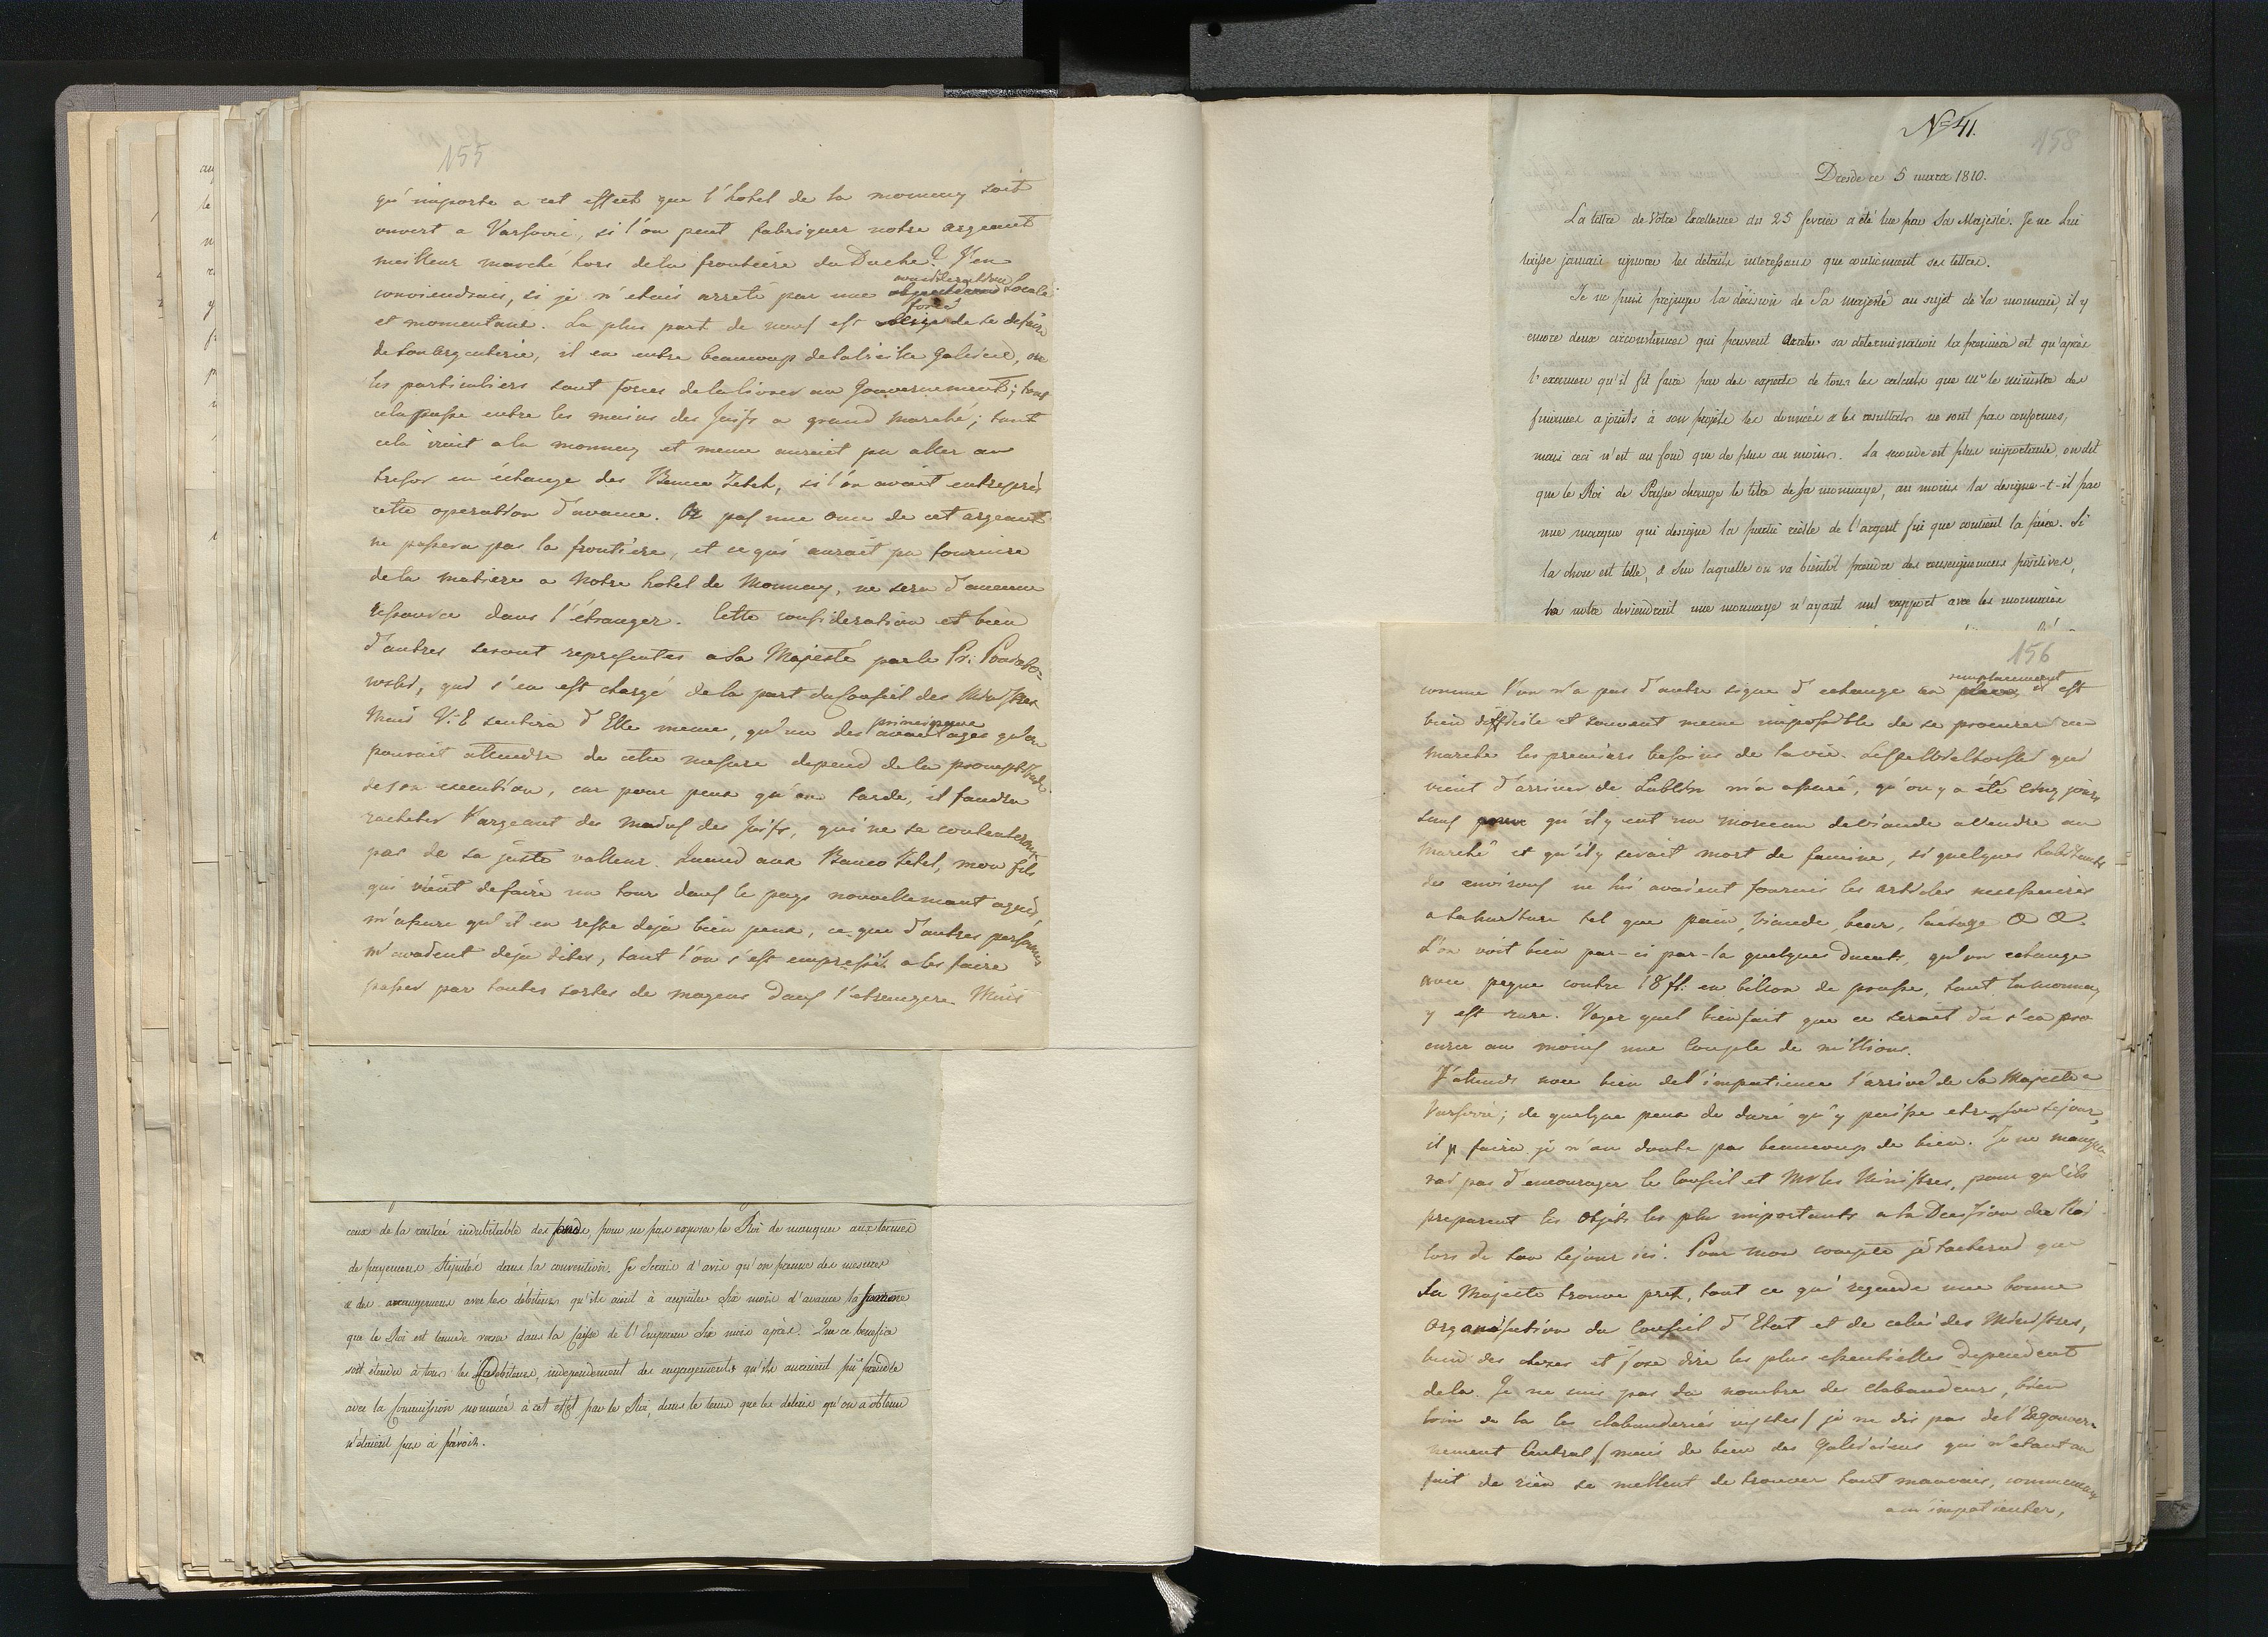 155
qu'importe a cet effect que l'hotel de la monney soit
ouvert a Varsovie, si l'on peut fabriquer notre argeant
meilleur marché hors dela frontiere du Duché? J'en
conviendrais, si je n'etais arreté par une consideration locale
et momentané. La plus part de nous est forcé de se defaire
de son argenterie, il en entre beaucoup de la vieille Galicie, ou
les particuliers sont forces de la livrer au Gouvernement; tout
cela passe entre les mains des Juifs a grand marché; tout
cela irait a la monney et meme auroit pu aller au
tresor en échange des Banco Zetel, si l'on avait entrepris
cette operation d'avance. Or pas une once de cet argeant
ne passera pas la frontière, et ce qui aurait pu fournire
de la matiere a notre hotel de Monney, ne sera d'aucune
ressource dans l'étranger. Cette consideration et bien
d'autres seront representes a Sa Majesté par le Pr: Poniato=
wski, qui s'en est chargé de la part du Conseil des Ministres
Mais V. E sentira d'Elle meme, qu'un des principaux avantages qu'on
pouvait attendre de cette mesure depend de la promptitude
de son execution, car pour peux qu'on tarde, il faudra
racheter l'argeant des mains des Juifs, qui ne se contenteront
pas de sa juste valleur. Quand aux Banco Zetel, mon fils
qui vient defaire un tour dans le pays nouvellemant aquis,
m'assure qu'il en reste deja bien peux, ce que d'autres personnes
m'avaient deja dites, tant l'on s'est empressé a les faire
passer par toutes sortes de moyens dans l'etrangere. Mais
ceux de la rentrée indubitable des fonds, pour ne pas exposer le Roi de manquer aux termes
de payemens stipulés dans la convention. Je serais d'avis qu'on prenne des mesures
& des arrangemens avec les débiteurs qu'ils aient à acquiter six mois d'avance la somme
que le Roi est tenu de verser dans la Caisse de l'Empereur six mois après. Que ce benefice
soit étendu à tous les debiteurs, independament des engagements qu'ils auraient pu prendre
avec la Commission nommée à cet effet par le Roi, dans le tems que les delais qu'on a obtenu
n'étaient pas à prévoir.
N° 41.
158
Dresde ce 5 mars 1810.
La lettre de Votre Excellence du 25 fevrier a été lue par Sa Majesté. Je ne Lui
laisse jamais ignorer les détails interessans que contiennent ses lettres.
Je ne puis prejuger la décision de Sa Majesté au sujet de la monnaie, il y
encore deux circonstances qui peuvent arreter sa détermination la première est qu'après
l'examen qu'il fit faire par des experts de tous les calculs que Mr le ministre des
finances a joints à son projet les données & les resultats ne sont pas conformes,
mais ceci n'est au fond que de plus au moins. La seconde est plus importante, on dit
que le Roi de Prusse change le titre de sa monnaye, au moins la designe-t-il par
une marque qui designe la partie réelle de l'argent fin que contient la pièce. Si
la chose est telle, & sur laquelle on va bientôt prendre des renseignemens positives,
la notre deviendrait une monnaye n'ayant nul rapport avec les monnaies
156
comme l'on n'a pas d'autre signe d'echange en remplacement il est
bien difficile et souvant meme impossible de se procurer au
marché les premiers besoins de la vie. Le Wielhorski qui
vient d'arriver de Lublin m'a assuré, qu'on y a été cinq jours
sans qu'il y eut un morceau de viande a vendre au
marché et qu'il y serait mort de famine, si quelques habitants
des environs ne lui avaient fournis les articles necessaires
a la nurriture tel que pain, viande, beur, laitage & &.
L'on voit bien par-ci par-la quelques Ducats, qu'on echange
avec peyne contre 18 fl. en billon de prusse, tant la monney
y est rare. Voyez quel bienfait que ce serait da s'en pro
curer au moins une couple de millions.
J'attends avec bien de l'impatience l'arrivé de Sa Majesté a
Varsovie; de quelque peux de duré qu'y puisse etre son sejour,
il y faira je n'en doute pas beaucoup de bien. Je ne manque
rai pas d'encourager le Conseil et Mrs les Ministres, pour qu'ils
preparent les objets les plus importants a la Decision du Roi
lors de son sejour ici. Pour mon compte je tacherai que
Sa Majesté trouve pret, tout ce qui regarde une bonne
organisation du Conseil d'Etat et de celui des Ministres,
bien des choses et j'ose dire les plus essentielles dependent
dela. Je ne suis pas du nombre des clabaudeurs, bien
loin de la les clabauderies injustes / je ne dis pas de l'Exgouver
nement Central / mais de bien des Galiciens qui n'etant au
fait de rien se mettent de trouver tout mauvais, commencent
a m'impatienter,